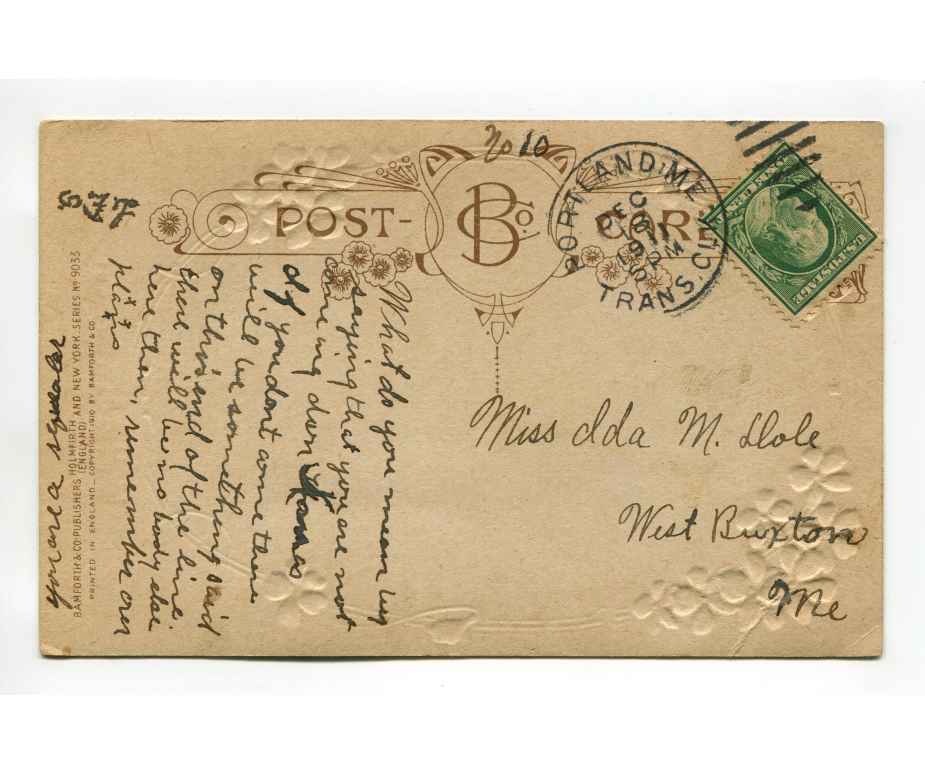 No 10
POST-
BCo.
CARD
PORTLAND, ME.
DEC
19 11
PM
TRANS. CL'K
U.S. POSTAGE
What do you mean by
saying that you are not
coming down
If you don't come there
will be something said
on this end of the line.
there will be no body else
here then, remember our
plans
F.F.S
you are a squealer
BAMFORTH & CO. PUBLISHERS HOLMFIRTH (ENGLAND) AND NEW YORK. SERIES No 9033
PRINTED IN ENGLAND_ COPYRIGHT 1910 BY BAMFORTH & CO
Miss Ida M. Dole
West Buxton
Me